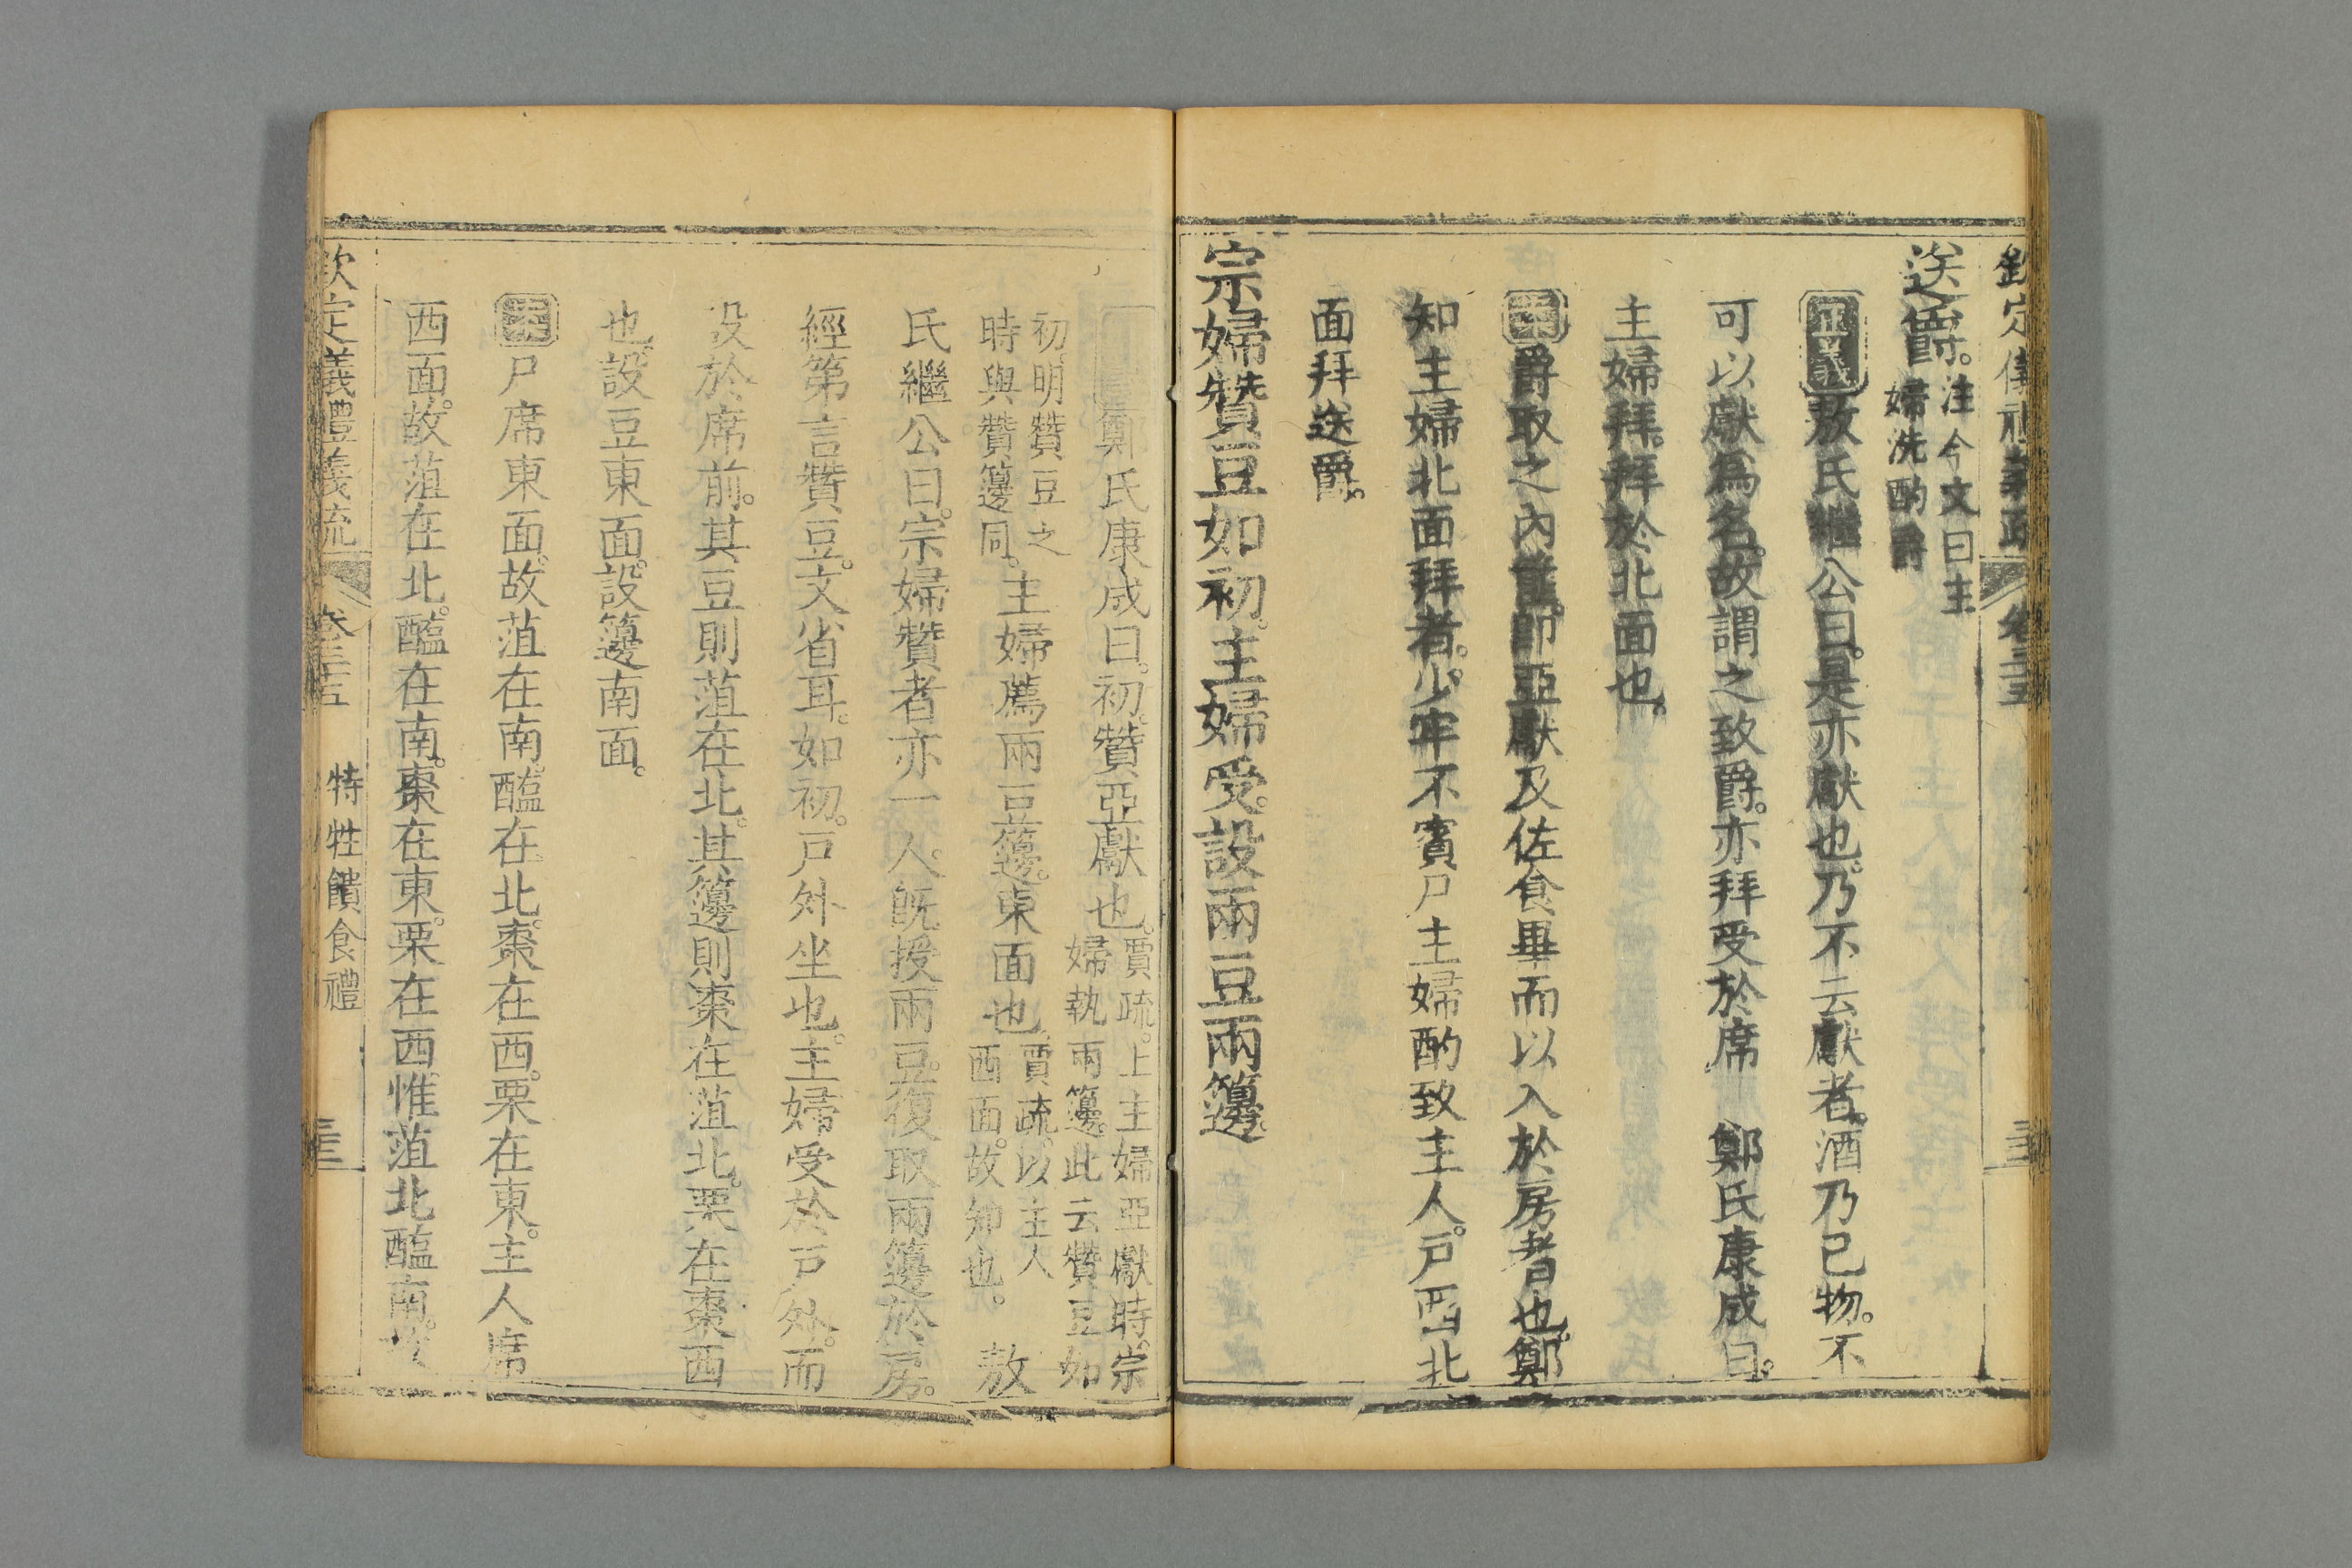 欽定儀禮義疏 卷三十五
送爵。注今文曰主
婦洗酌爵
正義敖氏繼公曰。是亦獻也。乃不云獻者。酒乃己物。不
可以獻爲名。故謂之致爵。亦拜受於席 鄭氏康成曰。
主婦拜。拜於北面也。
案爵取之內篚。即亞獻及佐食畢而以入於房者也。鄭
知主婦北面拜者。少牢不賓尸主婦酌致主人。戸西北
面拜送爵。
宗婦贊豆如初。主婦受。設兩豆兩籩。
鄭氏康成曰。初。贊亞獻也。賈疏。上主婦亞獻時。宗
婦執兩籩。此云贊豆如
初。明贊豆之
時與贊籩同。主婦薦兩豆籩。東面也。賈疏。以主人
西面。故知也。 敖
氏繼公曰。宗婦贊者亦一人。旣授兩豆。復取兩籩於房。
經第言贊豆。文省耳。如初。戸外坐也。主婦受於戸外。而
設於席前。其豆則菹在北。其籩則棗在菹北。栗在棗西
也。設豆東面。設籩南面。
案尸席東面。故菹在南。醢在北。棗在西。栗在東。主人席
西面。故菹在北。醢在南。棗在東。栗在西。惟菹北醢南。故
欽定義禮義疏 卷三十五 特牲饋食禮